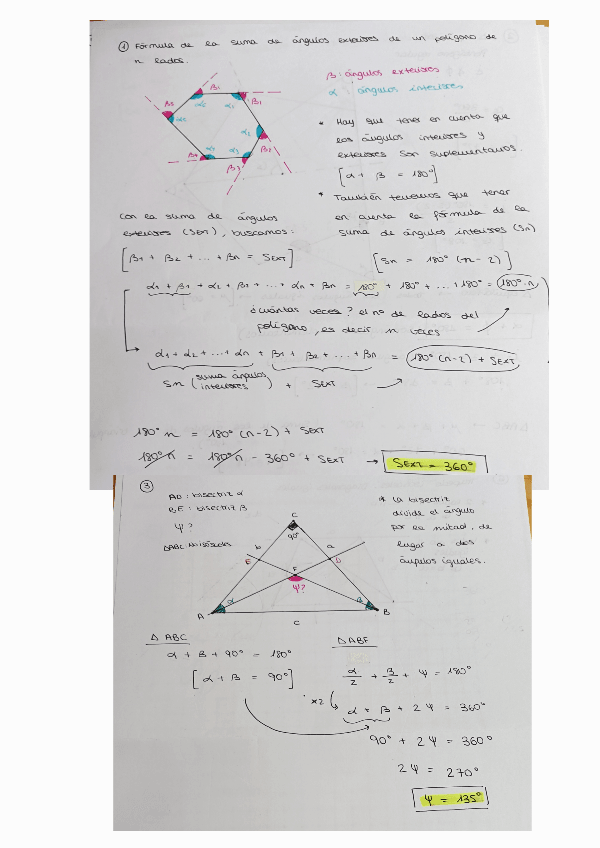 1 Fórmula de la suma de ángulos exteriores de un polígono de
n lados.
β: ángulos exteriores
α: ángulos interiores
β1
β1
β5
α5
α1
α2
β2
β4
α4
α3
β3
* Hay que tener en cuenta que
los ángulos interiores y
exteriores son suplementarios.
[α + β = 180°]
* También tenemos que tener
en cuenta la fórmula de la
suma de ángulos interiores (Sn)
[Sn = 180° (n - 2)]
Con la suma de ángulos
exteriores (SEXT), buscamos:
[β1 + β2 + ... + βn = SEXT]
α1 + β1 + α2 + β1 + ... + αn + βn = 180° + 180° + ... + 180° = 180°·n
¿cuántas veces? el nº de lados del
polígono, es decir n veces
α1 + α2 + ... + αn + β1 + β2 + ... + βn = 180° (n-2) + SEXT
Sn (suma ángulos interiores) + SEXT
180° n = 180° (n-2) + SEXT
180° n = 180° n - 360° + SEXT → SEXT = 360°
3
AD: bisectriz α
BE: bisectriz β
Ψ?
ΔABC
* La bisectriz
divide el ángulo
por la mitad, da
lugar a dos
ángulos iguales.
C
90°
b
a
E
D
F
Ψ?
α
β
A
B
c
Δ ABC
α + β + 90° = 180°
[α + β = 90°]
Δ ABF
α/2 + β/2 + Ψ = 180°
x2
α + β + 2Ψ = 360°
90° + 2Ψ = 360°
2Ψ = 270°
Ψ = 135°